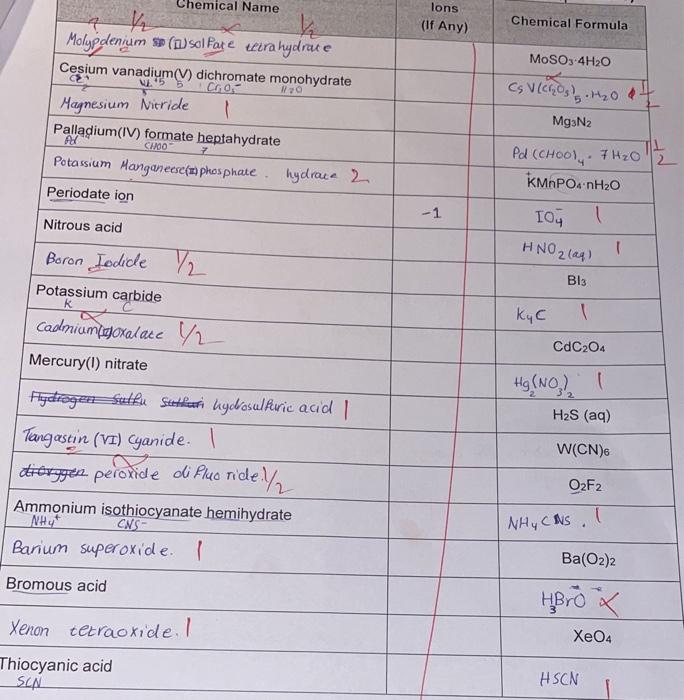 Chemical Name Ions (If Any) Chemical Formula
? 1/2 1/2
Molypdenium (II) solfate tetrahydrate MoSO3·4H2O
Cesium vanadium(V) dichromate monohydrate CsV(Cr2O3)5·H2O 1/2
+5 5 H2O
Magnesium Nitride 1 Mg3N2
Palladium(IV) formate heptahydrate Pd(CHOO)4·7H2O 1 1/2
Pd CHOO- 7
Potassium Manganeese(II) phosphate. hydrate 2 KMnPO4·nH2O
Periodate ion -1 IO4- 1
Nitrous acid HNO2(aq) 1
Boron Iodide 1/2 BI3
Potassium carbide K4C 1
K C
Cadmium(II)oxalate 1/2 CdC2O4
Mercury(I) nitrate Hg2(NO3)2 1
Hydrogen Sulfu hydrosulfuric acid 1 H2S (aq)
Tangastin (VI) Cyanide. 1 W(CN)6
dioxygen peroxide difluoride. 1/2 O2F2
Ammonium isothiocyanate hemihydrate NH4CNS. 1
NH4+ CNS-
Barium superoxide. 1 Ba(O2)2
Bromous acid H3BrO
Xenon tetraoxide. 1 XeO4
Thiocyanic acid HSCN 1
SCN